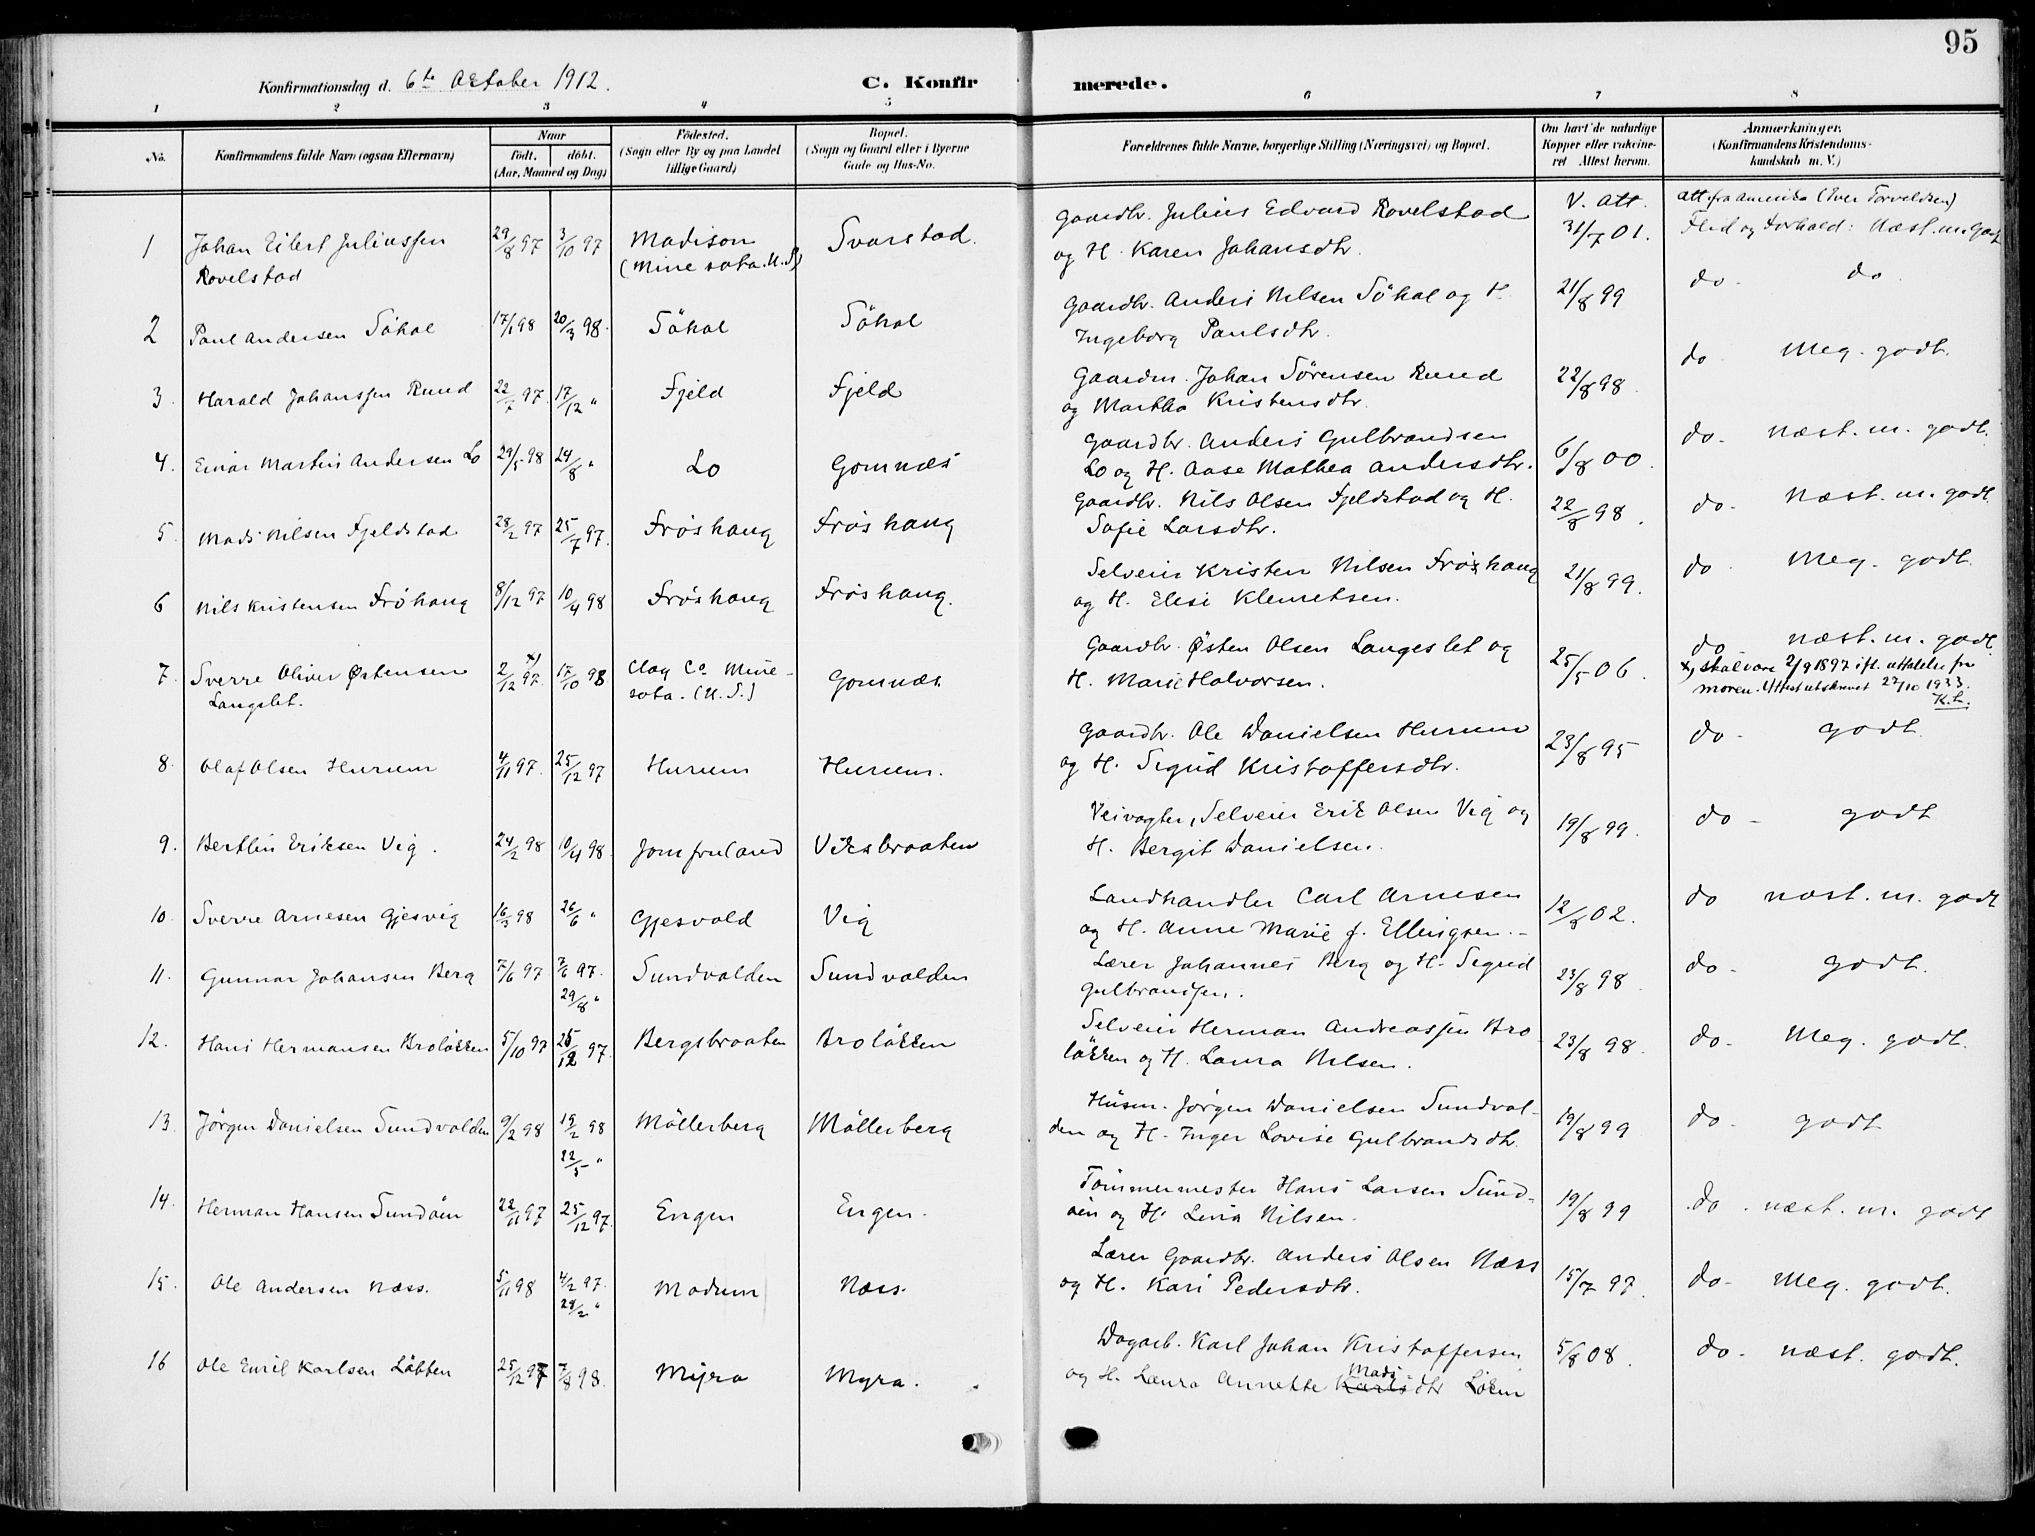 95
Konfirmationsdag d. 6te Oktober 1912.
C. Konfirmerede.
1 2 3 4 5 6 7 8
No. Konfirmandens fulde Navn (ogsaa Efternavn) Naar født. døbt. (Aar, Maaned og Dag) Fødested. (Sogn eller By og paa Landet tillige Gaard) Bopæl. (Sogn og Gaard eller i Byerne Gade og Hus-No. Forældrenes fulde Navne, borgerlige Stilling (Næringsvei) og Bopæl. Om havt de naturlige Kopper eller vakcineret Attest herom. Anmærkninger. (Konfirmandens Kristendomskundskab m. V.)
1 Johan Eilert Juliussen 29/8 97 3/10 97 Madison Svarstad. Gaardbr. Julius Edvard Rovelstad V. att. att. fra Amerika (Iver Torveldsen)
Rovelstad (Minesota. U.S) og H. Karen Johansdtr. 31/7 01. Flid og Forhold: Næst. m. godt
2 Paul Andersen Søhol 17/1 98 20/3 98. Søhol Søhol Gaardbr. Anders Nilsen Søhol og H. 21/8 99 do - do
Ingeborg Paulsdtr.
3. Harald Johanssen Rund 22/7 97. 17/12 " Fjeld Fjeld Gaardm. Johan Sørensen Rund 22/8 98. do Meg. godt.
og Martha Kristensdtr.
4. Einar Martin Andersen Lo 29/5 98 24/8 " Lo Gomnæs Gaardbr. Anders Gulbrandsen 6/8 00. do. næst. m. godt.
Lo og H. Aase Mathea Andersdtr.
5. Mads Nilsen Fjeldstad 28/2 97 25/7 97. Frøshaug Frøshaug Gaardbr. Nils Olsen Fjeldstad og H. 22/8 98. do. Næst. m. godt
Sofie Larsdtr.
6 Nils Kristensen Frøhaug 8/12 97 10/4 98 Frøshaug Frøshaug. Selveier Kristen Nilsen Frøshaug 21/8 99. do Meg. godt.
og H. Elise Klemetsen.
7. Sverre Oliver Østensen 2/12 97. x) 17/10 98 Clay Co Mine- Gomnæs Gaardbr. Østen Olsen Langeslet og 25/5 06. do næst. m. godt
Langslet. sota. (U.S.) H. Marie Halvorsen. x) skal være 2/9 1897 ifl. uttalelse fra
moren. Attest utskrevet 27/10 1933.
K.L.
8. Olaf Olsen Hurum 4/11 97. 25/12 97 Hurum Hurum. Gaardbr. Ole Danielsen Hurum 23/8 95 do - godt.
og H. Sigrid Kristoffersdtr.
9. Berthin Eriksen Vig. 24/2 98 10/4 98. Jomfruland Viksbraaten Veivogter, Selveier Erik Olsen Vig og 19/8 99. do - godt
H. Bergit Danielsen.
10. Sverre Arnesen Gjesvig 16/3 98 26/6 " Gjesvold Vig Landhandler Carl Arnesen 12/8 02. do næst. m. godt
og H. Anne Marie f. Ellingsen. -
11. Gunnar Johansen Berg 7/6 97 7/6 97. Sundvolden Sundvolden Lærer Johannes Berg og H. Sigrid 23/8 98 do - godt.
29/8 " Gulbrandsen.
12. Hans Hermansen Broløkken 5/10 97 25/12 97. Bergsbraaten Broløkken Selveier Herman Andreassen Bro- 23/8 98. do - Meg. godt.
løkken og H. Laura Nilsen.
13. Jørgen Danielsen Sundvolden 9/2 98 19/2 98 Møllerberg Møllerberg Husm. Jørgen Danielsen Sundvol- 19/8 99 do - godt
22/5 " den og H. Inger Lovise Gulbrandsdtr.
14. Herman Hansen Sundøen 22/11 97 25/12 97. Engen Engen. Tømmermester Hans Larsen Sund- 19/8 99 do. næst. m. godt
øen og H. Lina Nilsen.
15. Ole Andersen Næss. 5/11 98 4/2 97. Modum Næss. Lærer Gaardbr. Anders Olsen Næss 15/7 97. do - Meg. godt.
28/2 " og H. Kari Pedersdtr.
16 Ole Emil Karlsen Løbben 25/12 97 7/8 98. Myra Myra. Dagarb. Karl Johan Kristoffersen 5/8 08. do - næst. godt.
og H. Laura Annette Karlsdtr Mads Løken